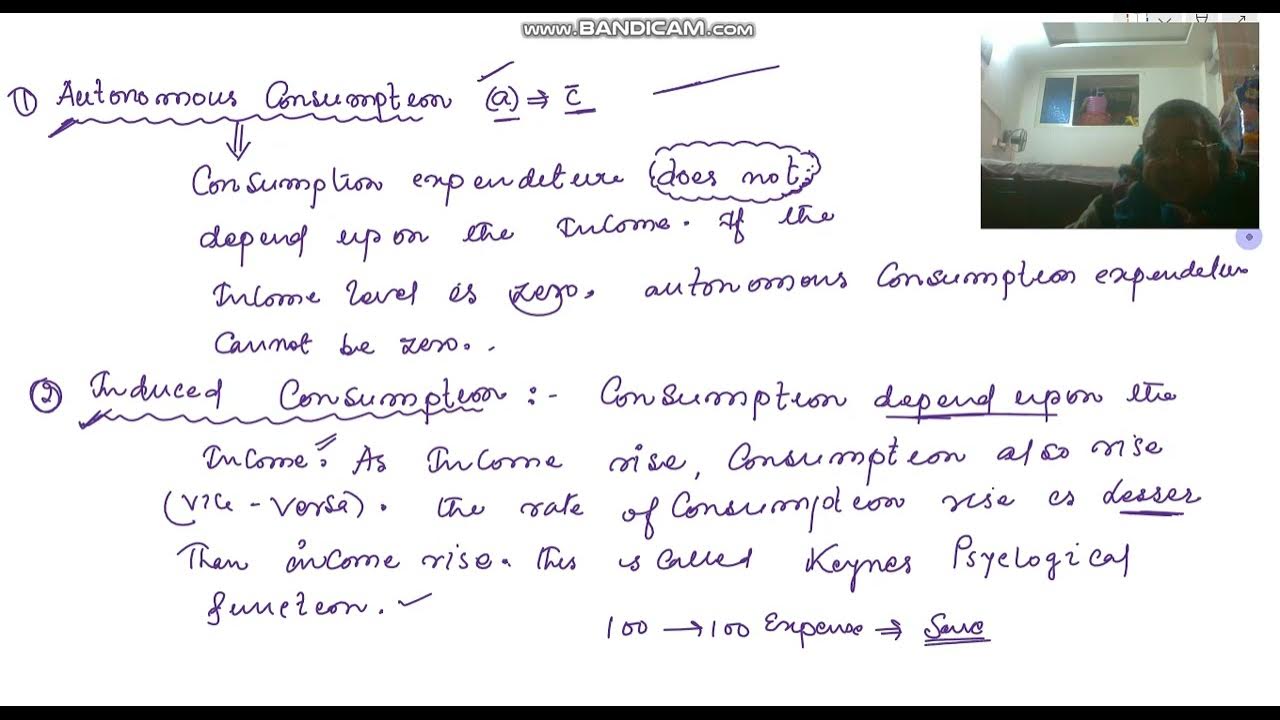 WWW.BANDICAM.COM
① Autonomous Consumption (a) ⇒ c̄
Consumption expenditure does not
depend upon the Income. If the
Income level is zero. autonomous Consumption expenditure
Cannot be zero.
② Induced Consumption :- Consumption depend upon the
Income. As Income rise, Consumption also rise
(vice-versa). The rate of Consumption rise is lesser
Than income rise. This is called Keynes Psyclogical
function.
100 → 100 Expense ⇒ Save